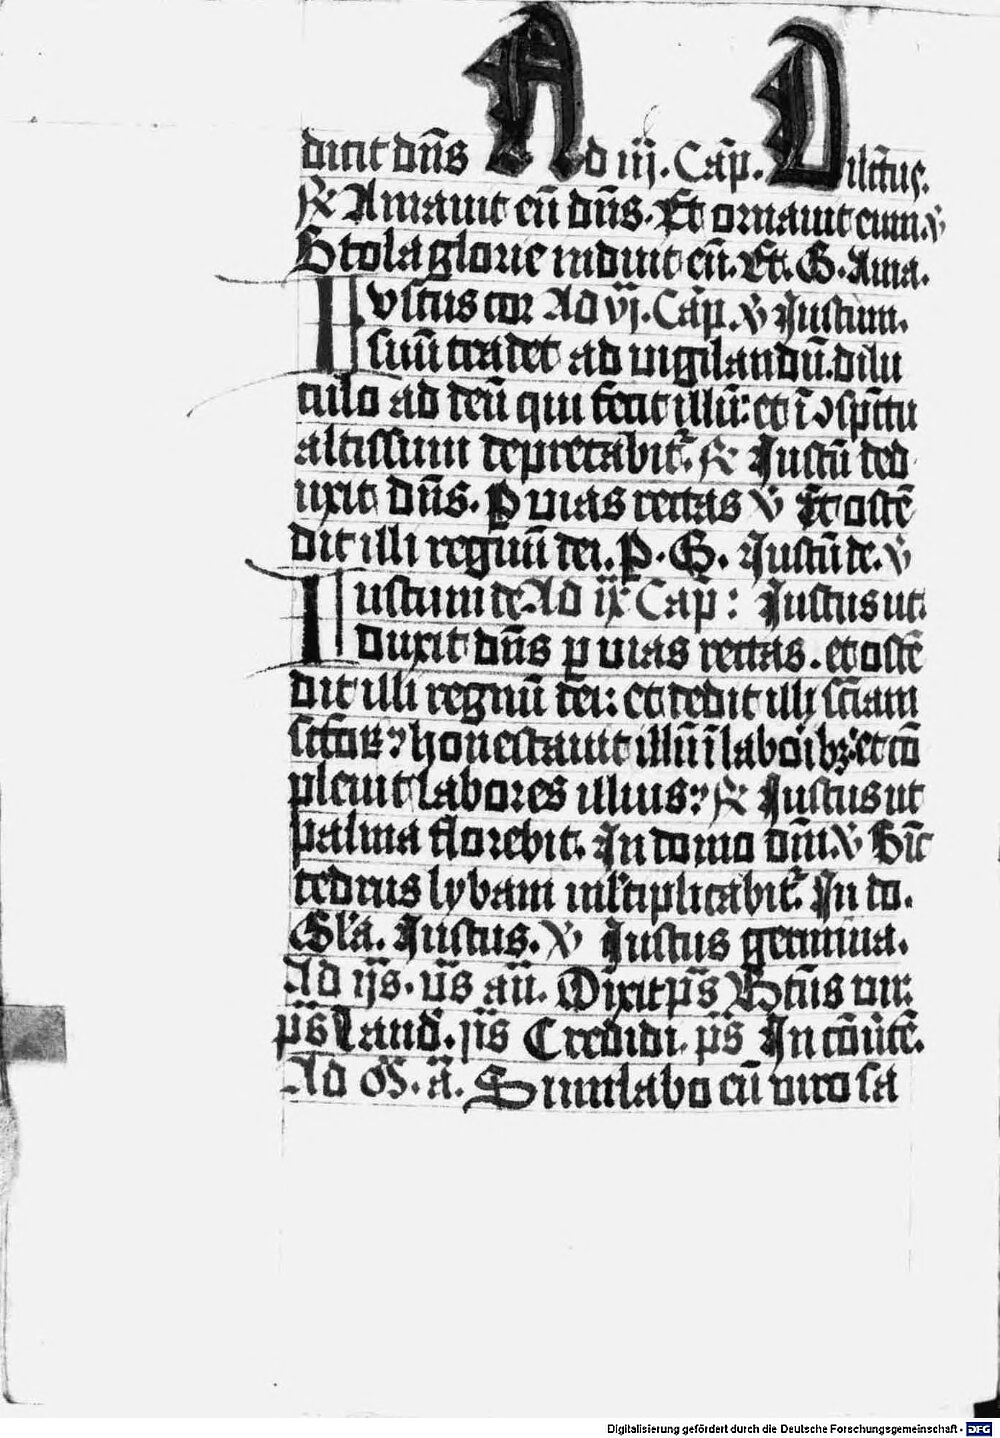 dicit dn̄s Ad iij. Cap̄. Dilectus.
℟ Amauit eū dn̄s. Et ornauit eum. ℣
Stola glorie induit eū. Et. G. Ama.
Iustus cor Ad vj. Cap̄. ℣ Justum.
suū tradet ad vigilandū. dilu
culo ad deū qui fecit illū: et ī ɔspc̄tu
altissimi deprecabit᷑. ℟ Justū ded
uxit dn̄s. P vias rectas ℣ Et ostē
dit illi regnū dei. P. G. Justū de. ℣
Iustum de Ad ix Cap̄: Justus ut.
duxit dn̄s p vias rectas. et ostē
dit illi regnū dei: et dedit illi sc̄iam
sc̄torꝝ honestauit illū ī laboribꝫ: et cō
pleuit labores illius: ℟ Justus ut
palma florebit. In domo dn̄i ℣ Sic̄
cedrus lybani ml̄tiplicabit᷑. In do.
Gl̄a. Justus. ℣ Justus germina.
Ad ijs. vs̄ an̄. Dixit ps̄ Btūs vir:
ps̄ Laud. ijs Credidi. ps̄ In cōuertē.
Ad M. a. Simlabo eū viro sa
Digitalisierung gefördert durch die Deutsche Forschungsgemeinschaft - DFG